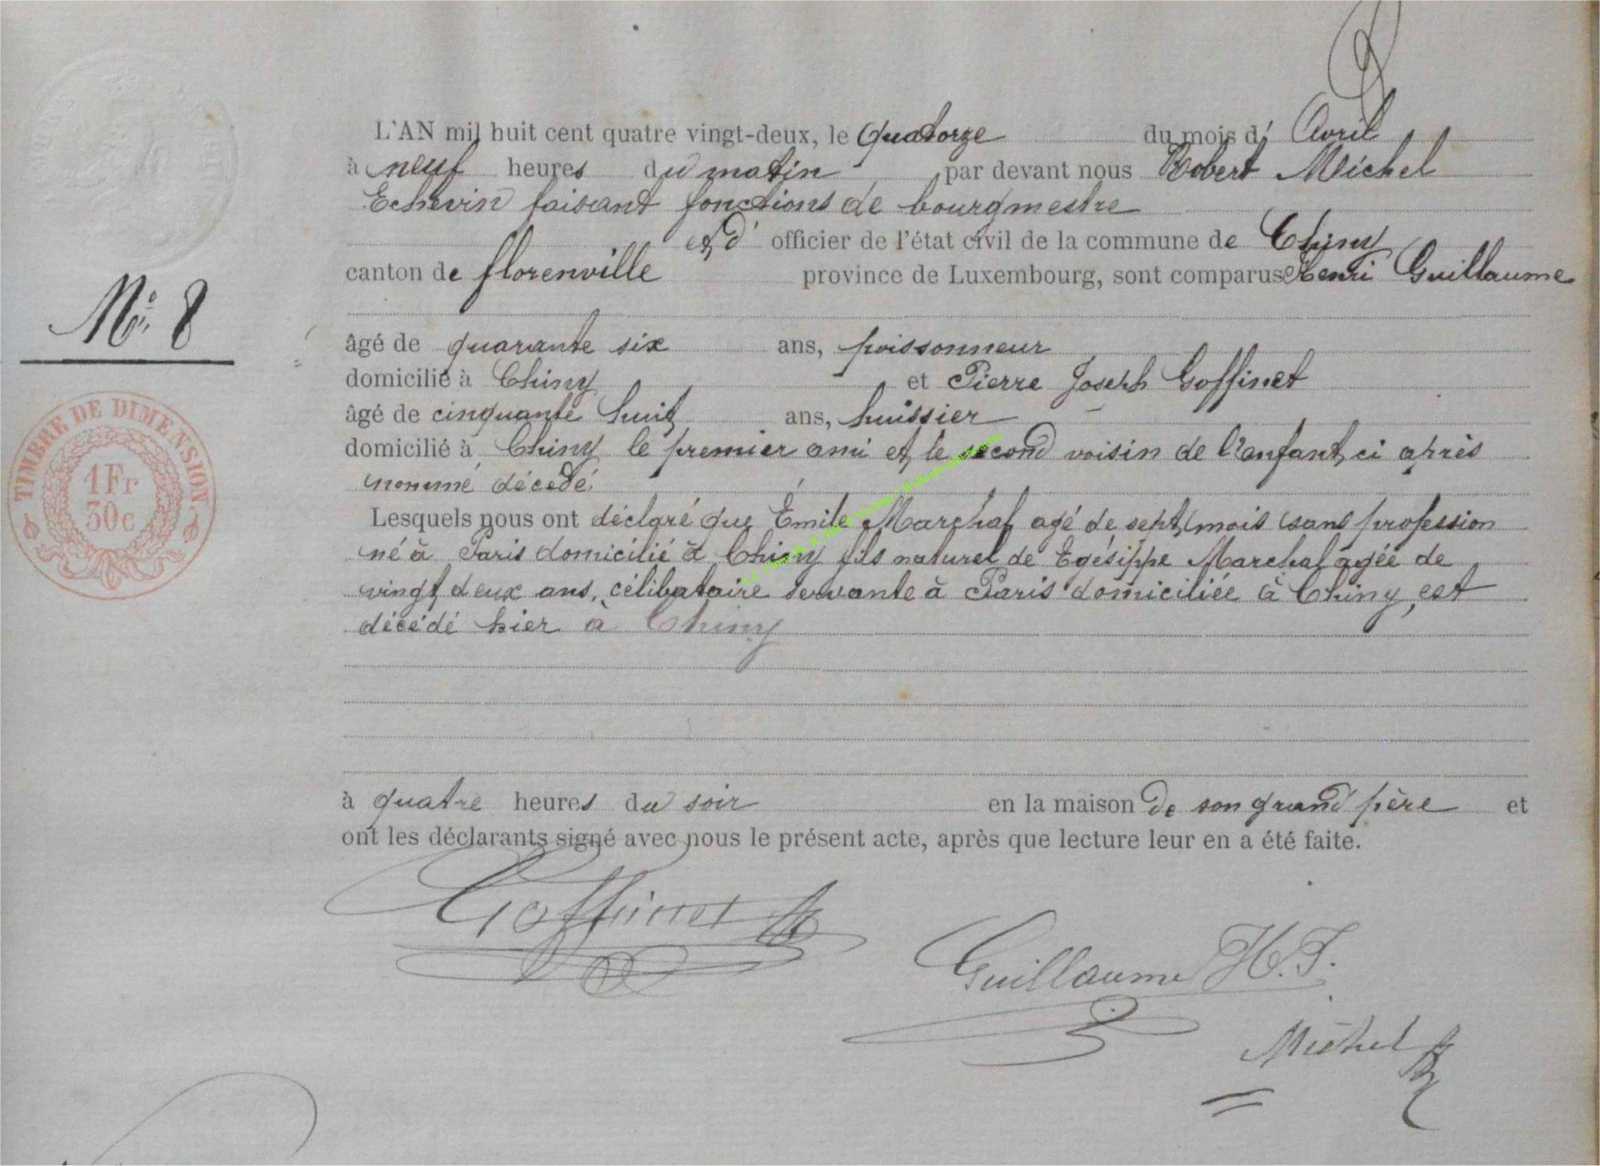 L'AN mil huit cent quatre vingt-deux, le quatorze du mois d' Avril
à neuf heures du matin par devant nous Robert Michel
Echevin faisant fonctions de bourgmestre
et d' officier de l'état civil de la commune de Chiny
canton de florenville province de Luxembourg, sont comparus Henri Guillaume
No. 8
âgé de quarante six ans, poissonneur
domicilié à Chiny et Pierre Joseph Goffinet
âgé de cinquante huit ans, huissier
domicilié à Chiny le premier ami et le second voisin de l'enfant ci après
nommé décédé
TIMBRE DE DIMENSION.
1 Fr
30c
Lesquels nous ont déclaré que Émile Marchal agé de sept mois sans profession
né à Paris domicilié à Chiny fils naturel de Egésippe Marchal agée de
vingt deux ans, célibataire servante à Paris domiciliée à Chiny, est
décédé hier à Chiny
à quatre heures du soir en la maison de son grand père et
ont les déclarants signé avec nous le présent acte, après que lecture leur en a été faite.
Goffinet
Guillaume H.J.
Michel R